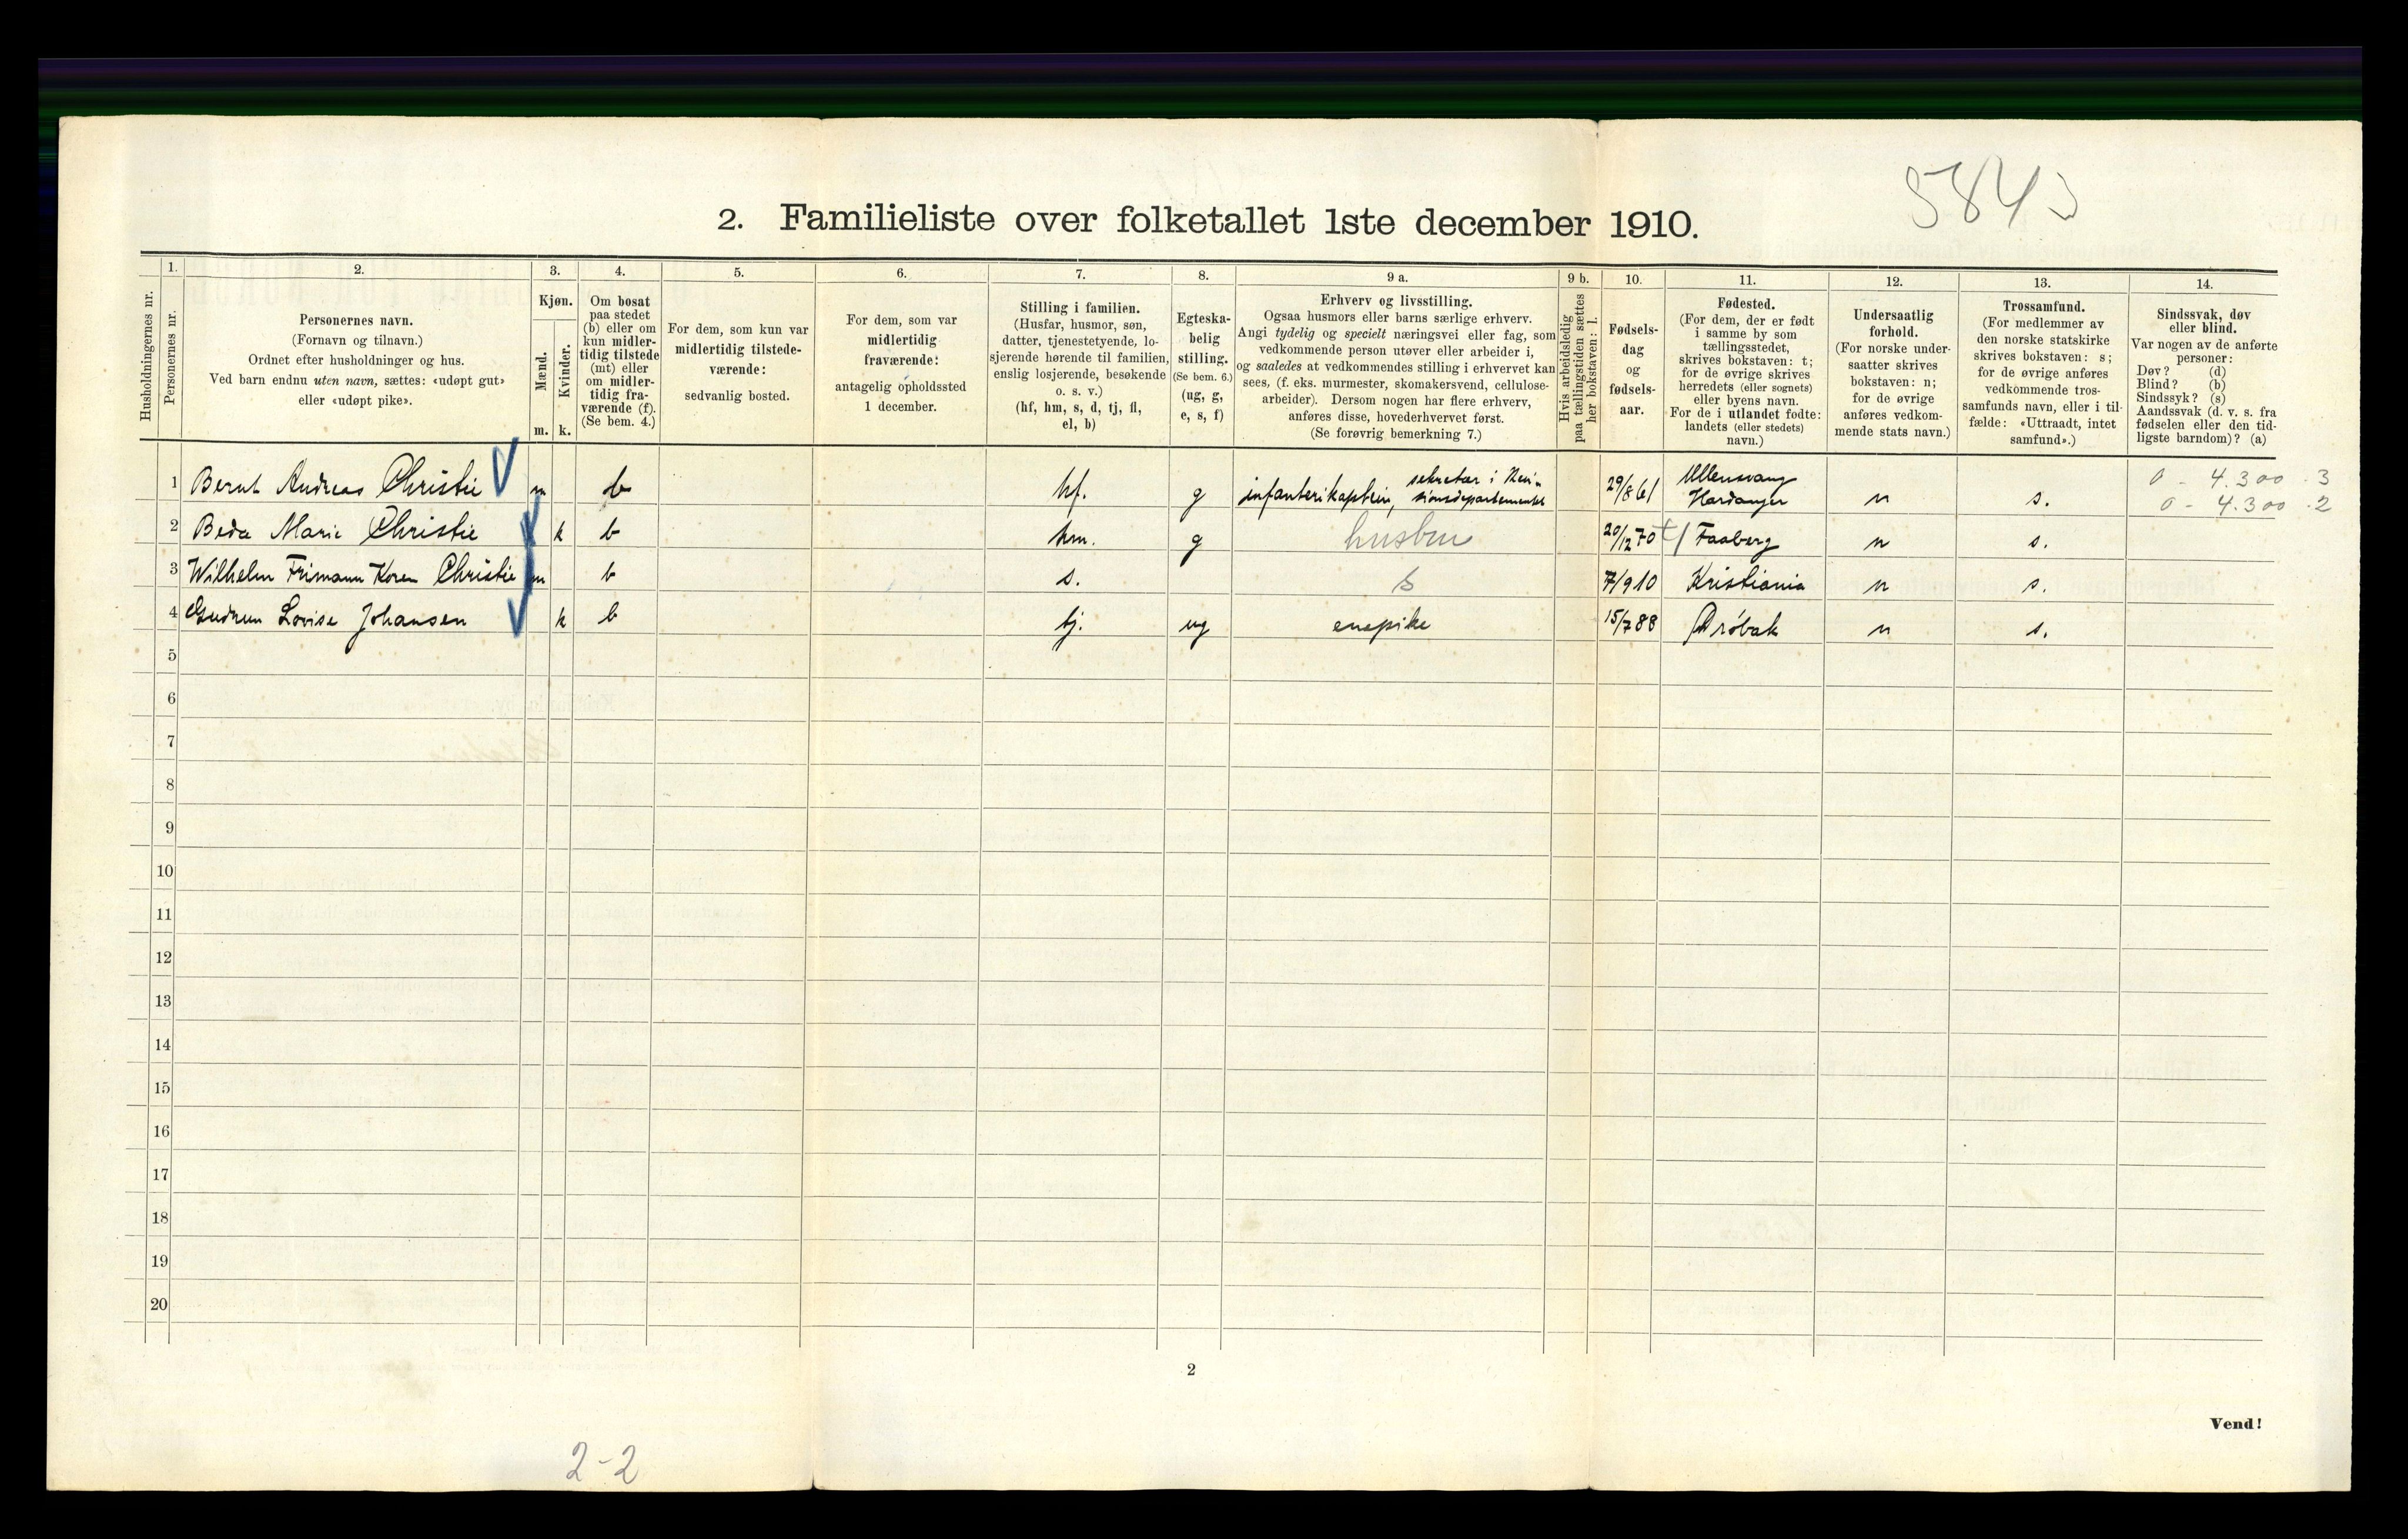 5843
2. Familieliste over folketallet 1ste december 1910.
Husholdningernes nr.
1. Personernes nr.
2. Personernes navn.
(Fornavn og tilnavn.)
Ordnet efter husholdninger og hus.
Ved barn endnu uten navn, sættes: «udøpt gut»
eller «udøpt pike».
3. Kjøn.
Mænd. m.
Kvinder. k.
4. Om bosat
paa stedet
(b) eller om
kun midler-
tidig tilstede
(mt) eller
om midler-
tidig fra-
værende (f).
(Se bem. 4.)
5. For dem, som kun var
midlertidig tilstede-
værende:
sedvanlig bosted.
6. For dem, som var
midlertidig
fraværende:
antagelig opholdssted
1 december.
7. Stilling i familien.
(Husfar, husmor, søn,
datter, tjenestetyende, lo-
sjerende hørende til familien,
enslig losjerende, besøkende
o. s. v.)
(hf, hm, s, d, tj, fl,
el, b)
8. Egteska-
belig
stilling.
(Se bem. 6.)
(ug, g,
e, s, f)
9 a. Erhverv og livsstilling.
Ogsaa husmors eller barns særlige erhverv.
Angi tydelig og specielt næringsvei eller fag, som
vedkommende person utøver eller arbeider i,
og saaledes at vedkommendes stilling i erhvervet kan
sees, (f. eks. murmester, skomakersvend, cellulose-
arbeider). Dersom nogen har flere erhverv,
anføres disse, hovederhvervet først.
(Se forøvrig bemerkning 7.)
9 b. Hvis arbeidsledig
paa tællingstiden sættes
her bokstaven: l.
10. Fødsels-
dag
og
fødsels-
aar.
11. Fødested.
(For dem, der er født
i samme by som
tællingsstedet,
skrives bokstaven: t;
for de øvrige skrives
herredets (eller sognets)
eller byens navn.
For de i utlandet fødte:
landets (eller stedets)
navn.)
12. Undersaatlig
forhold.
(For norske under-
saatter skrives
bokstaven: n;
for de øvrige
anføres vedkom-
mende stats navn.)
13. Trossamfund.
(For medlemmer av
den norske statskirke
skrives bokstaven: s;
for de øvrige anføres
vedkommende tros-
samfunds navn, eller i til-
fælde: «Uttraadt, intet
samfund».)
14. Sindssvak, døv
eller blind.
Var nogen av de anførte
personer:
Døv? (d)
Blind? (b)
Sindssyk? (s)
Aandssvak (d. v. s. fra
fødselen eller den tid-
ligste barndom)? (a)
1 Bernt Andreas Christie m b hf. g infanterikaptein, sekretær i Revi-
sionsdepartementet 29/8 61 Ullensvang
Hardanger n s. 0 - 4.300 . 3
0 - 4.300 . 2
2 Beda Marie Christie k b hm. g husbm 20/12 70 Faaberg n s.
3 Wilhelm Frimann Koren Christie m b s. s 7/9 10 Kristiania n s.
4 Gudrun Lovise Johansen k b tj. ug enepike 15/7 88 Drøbak n s.
5
6
7
8
9
10
11
12
13
14
15
16
17
18
19
20
2
Vend!
2-2